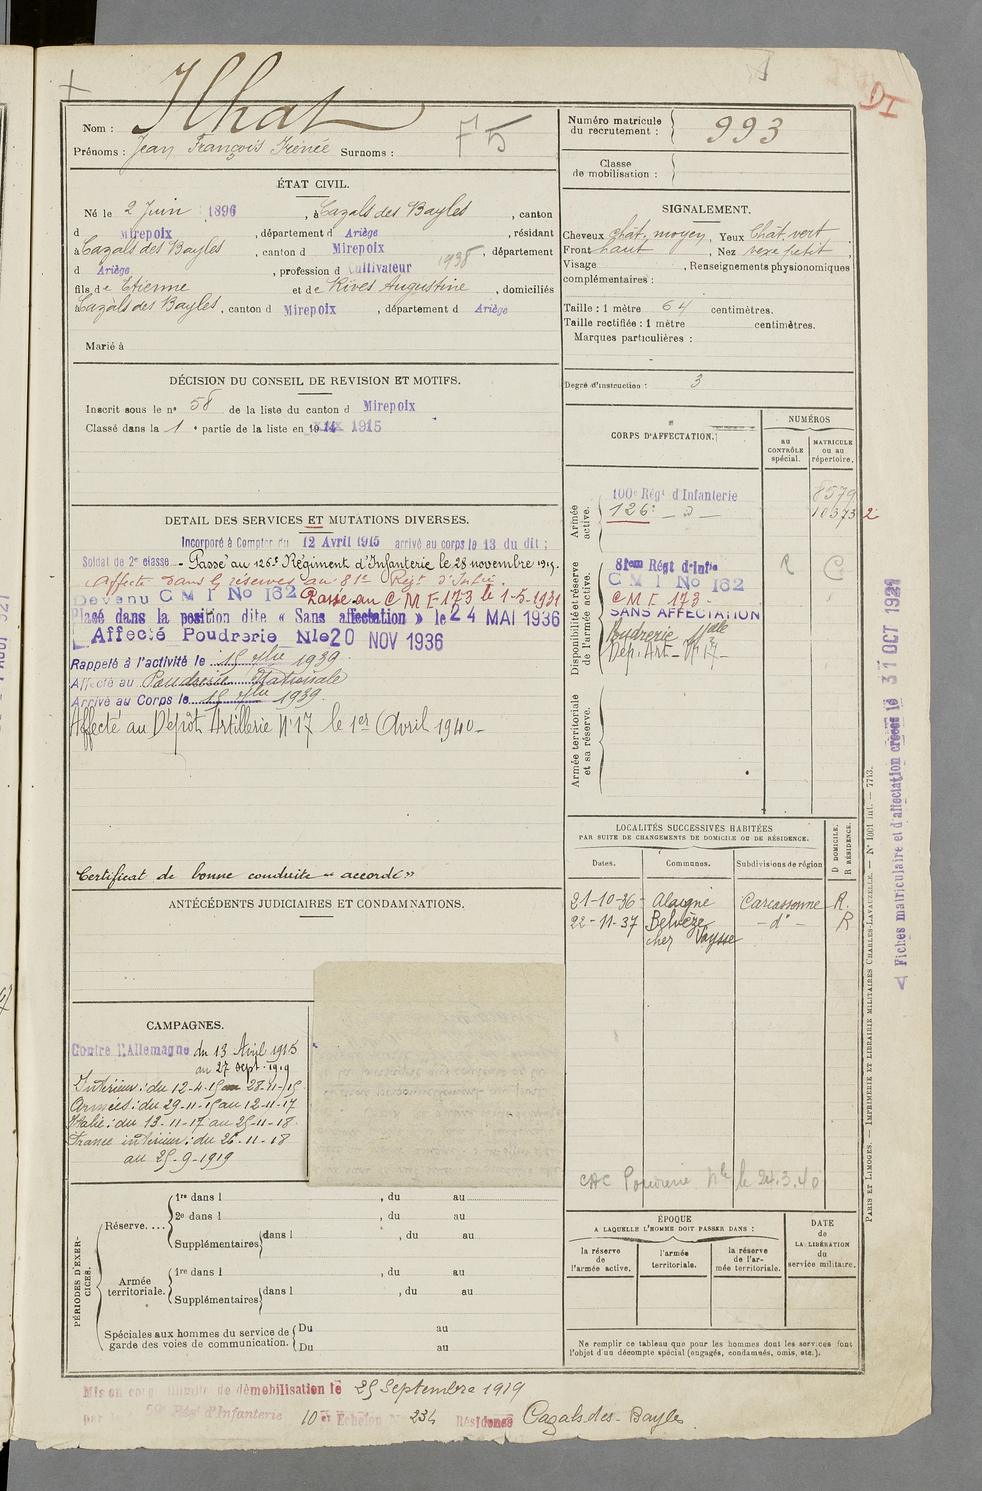 DI
Nom : Ilhat
Prénoms : Jean François Irénée Surnoms :
Numéro matricule du recrutement : 993
Classe de mobilisation :
ÉTAT CIVIL.
Né le 2 Juin 1896, à Cazals des Bayles, canton
d Mirepoix, département d Ariège, résidant
à Cazals des Bayles, canton d Mirepoix, département
d Ariège, profession d Cultivateur 1938
fils de Etienne et de Rives Augustine, domiciliés
Cazals des Bayles, canton d Mirepoix, département d Ariège
Marié à
SIGNALEMENT.
Cheveux chat. moyen, Yeux Chât. vert
Front haut, Nez vexe petit,
Visage , Renseignements physionomiques
complémentaires :
Taille : 1 mètre 64 centimètres.
Taille rectifiée : 1 mètre centimètres.
Marques particulières :
Degré d'instruction : 3
DÉCISION DU CONSEIL DE REVISION ET MOTIFS.
Inscrit sous le n° 58 de la liste du canton d Mirepoix
Classé dans la 1e partie de la liste en 1915
DETAIL DES SERVICES ET MUTATIONS DIVERSES.
Incorporé à Compter du 12 Avril 1915 arrivé au corps le 13 du dit ;
Soldat de 2e classe - Passé au 126e Régiment d'Infanterie le 28 novembre 1915.
Affecté dans les réserves au 81e Regt. d'Infie.
Devenu C M I No 162 Passé au C M I 173 le 1-5-1931
Placé dans la position dite « Sans affectation » le 24 MAI 1936
Affecté Poudrerie Nle 20 NOV 1936
Rappelé à l'activité le 15 1939
Affecté au Poudrerie Nationale
Arrivé au Corps le 15 1939
Affecté au Dépôt Artillerie N° 17 le 1er Avril 1940 -
Certificat de bonne conduite « accordé »
CORPS D'AFFECTATION.
NUMÉROS
AU CONTRÔLE spécial.
MATRICULE ou au répertoire.
Armée active.
100e Régt d'Infanterie 8579
126e - d° - 10373 2
Disponibilité et réserve de l'armée active.
81eme Régt d'Infie
C M I No 162
C M I 173 -
SANS AFFECTATION
Poudrerie Nale
Dép. Art - N° 17 -
Armée territoriale et sa réserve.
LOCALITÉS SUCCESSIVES HABITÉES
PAR SUITE DE CHANGEMENTS DE DOMICILE OU DE RÉSIDENCE.
Dates. Communes. Subdivisions de région
D DOMICILE. R RÉSIDENCE.
21-10-36 Alaigne Carcassonne R.
22-11-37 Belvèze - d° - R
chez Vaysse
ANTÉCÉDENTS JUDICIAIRES ET CONDAMNATIONS.
CAMPAGNES.
Contre l'Allemagne du 13 Avril 1915
au 27 sept. 1919
Intérieur : du 12-4-15 au 28-11-15
Armées : du 29-11-15 au 12-11-17
Italie : du 13-11-17 au 25-11-18
France intérieur : du 26-11-18
au 25-9-1919
le 24.3.40
PÉRIODES D'EXERCICES.
Réserve....
1re dans l , du au
2e dans l , du au
Supplémentaires dans l , du au
Armée territoriale.
1re dans l , du au
Supplémentaires dans l , du au
Spéciales aux hommes du service de garde des voies de communication.
Du au
Du au
ÉPOQUE
A LAQUELLE L'HOMME DOIT PASSER DANS :
la réserve de l'armée active.
l'armée territoriale.
la réserve de l'armée territoriale.
DATE de LA LIBÉRATION du service militaire.
Ne remplir ce tableau que pour les hommes dont les services font
l'objet d'un décompte spécial (engagés, condamnés, omis, etc.).
Mis en congé illimité de démobilisation le 25 Septembre 1919
par le 59e Régt d'Infanterie 10er Echelon N° 234 Résidence Cazals des-Bayles
PARIS ET LIMOGES. — IMPRIMERIE ET LIBRAIRIE MILITAIRES CHARLES-LAVAUZELLE. — N° 1001 int. — 7713.
Fiches matriculaire et d'affectation créées le 31 OCT